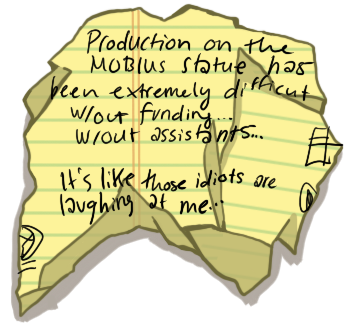 Production on the
MOBIUS statue has
been extremely difficult
w/out funding...
w/out assistants...
It's like those idiots are
laughing at me...